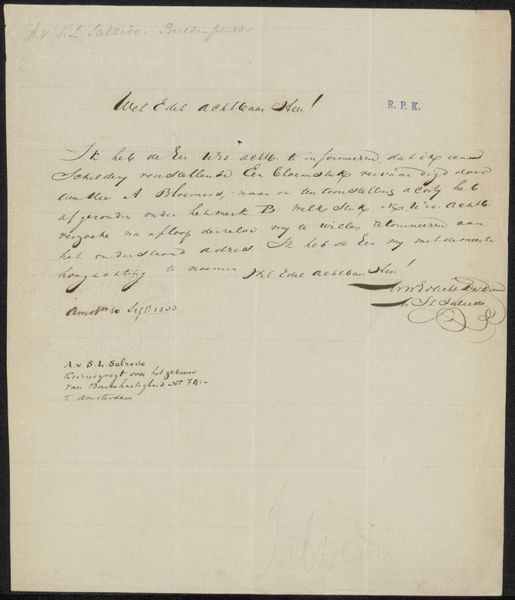 A. v. S. L. Salzedo
Wel Edel Achtbaar Heer!
R. P. K.
Ik heb de Eer UEd. achtb. te informeeren, dat ik een
Schildery voorstellende Een Bloemstuk vervaardigd door
den Heer A Bloemers, naar de ten toonstelling alhier heb
afgezonden onder het merk B. welk stuk ik UEd. Achtb.
verzoeke na afloop derzelve my te willen retourneeren aan
het onderstaand adres. Ik heb de Eer my met de meeste
hoogachting te noemen Wel Edel Achtbaar Heer!
UWEd Achtb Dw Dienaar
A. v. S. L. Salzedo
Amst. 10 Sept. 1833
A. v. S. L. Salzedo
Keizersgragt over het gebouw
van Barmhartigheid No 74
te Amsterdam
Salzedo